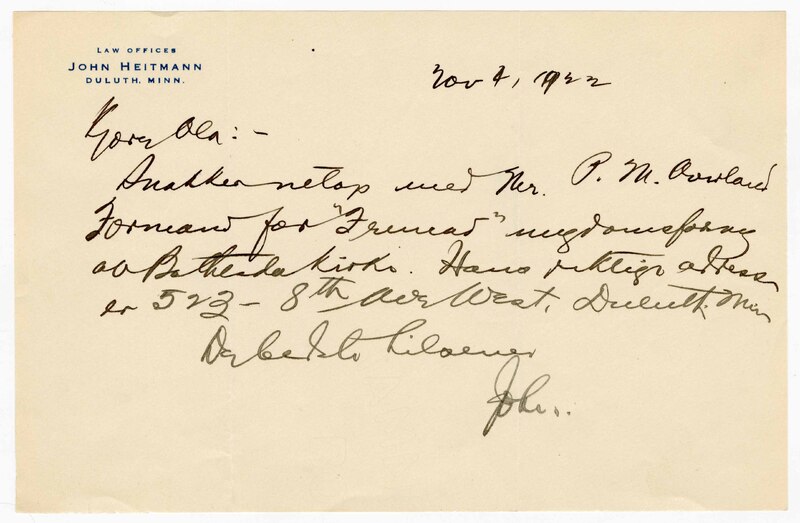 LAW OFFICES
JOHN HEITMANN
DULUTH, MINN.
Nov 4, 1922
Kjære Ola:-
Snakker netop med Mr. P. M.
Formand for "Fremad" ungdomsforening
av Bethesda kirke. Hans riktige adresse
er 523 - 8th Ave West, Duluth. Minn
De bedste hilsener
John.